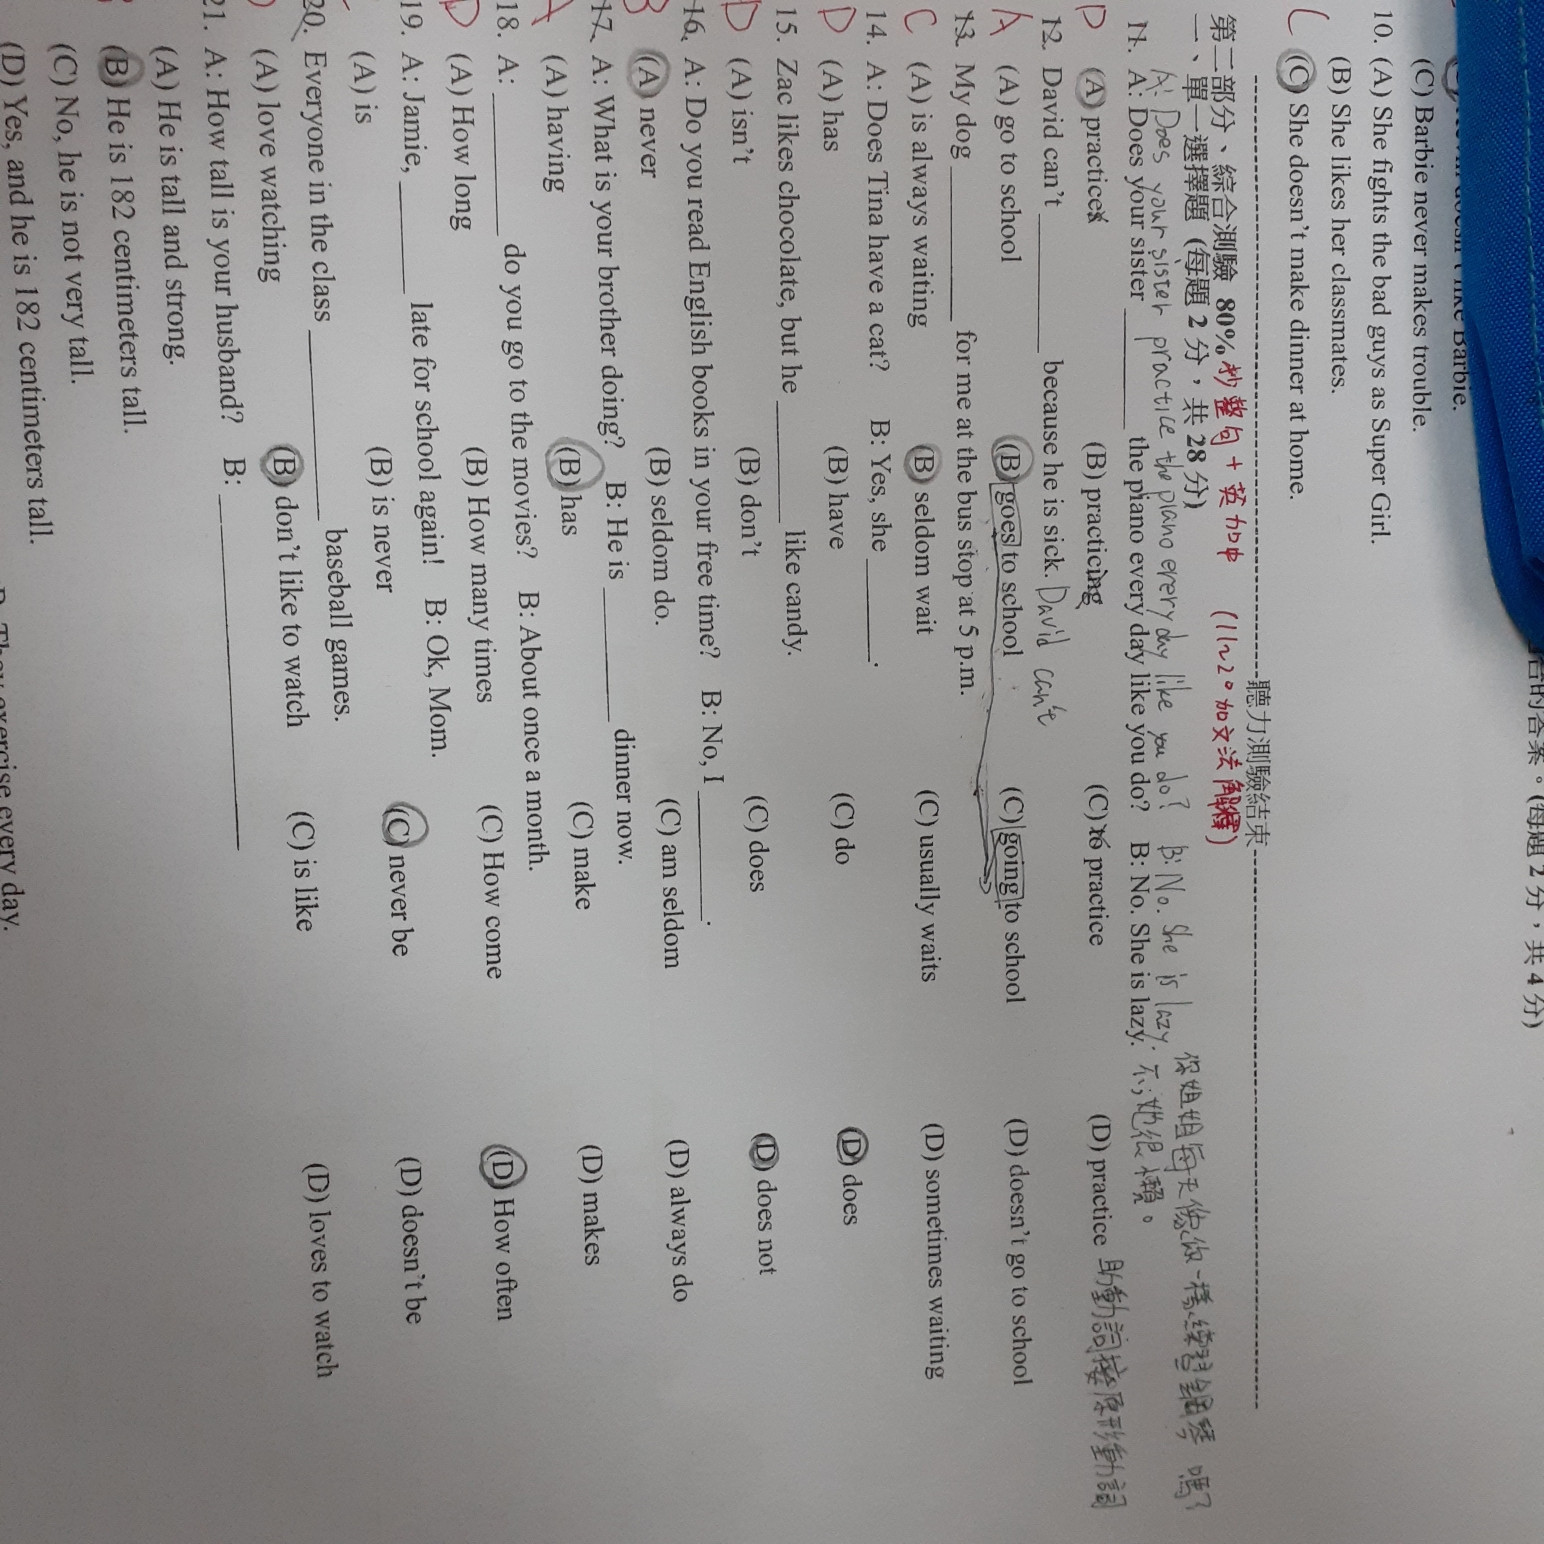 (C) Barbie never makes trouble.
10. (A) She fights the bad guys as Super Girl.
(B) She likes her classmates.
(C) She doesn't make dinner at home.
聽力測驗結束
第二部分、綜合測驗 80% 抄整句+英加中 (11~20加文法解釋)
一、單一選擇題 (每題 2 分，共 28 分)
A: Does your sister practice the piano every day like you do? B: No. She is lazy. 不,她很懶。
你姐姐每天像你一樣練習鋼琴嗎?
D 11. A: Does your sister ________ the piano every day like you do? B: No. She is lazy.
(A) practices (B) practicing (C) to practice (D) practice 助動詞接原形動詞
A 12. David can't ________ because he is sick. David can't
(A) go to school (B) goes to school (C) going to school (D) doesn't go to school
C 13. My dog ________ for me at the bus stop at 5 p.m.
(A) is always waiting (B) seldom wait (C) usually waits (D) sometimes waiting
D 14. A: Does Tina have a cat? B: Yes, she ________.
(A) has (B) have (C) do (D) does
D 15. Zac likes chocolate, but he ________ like candy.
(A) isn't (B) don't (C) does (D) does not
B 16. A: Do you read English books in your free time? B: No, I ________.
(A) never (B) seldom do. (C) am seldom (D) always do
A 17. A: What is your brother doing? B: He is ________ dinner now.
(A) having (B) has (C) make (D) makes
D 18. A: ________ do you go to the movies? B: About once a month.
(A) How long (B) How many times (C) How come (D) How often
19. A: Jamie, ________ late for school again! B: Ok, Mom.
(A) is (B) is never (C) never be (D) doesn't be
20. Everyone in the class ________ baseball games.
(A) love watching (B) don't like to watch (C) is like (D) loves to watch
21. A: How tall is your husband? B: ________
(A) He is tall and strong.
(B) He is 182 centimeters tall.
(C) No, he is not very tall.
(D) Yes, and he is 182 centimeters tall.